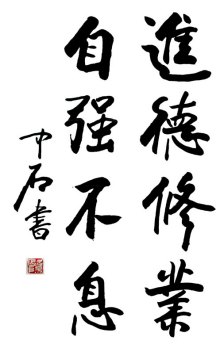 進德修業
自强不息
中石書